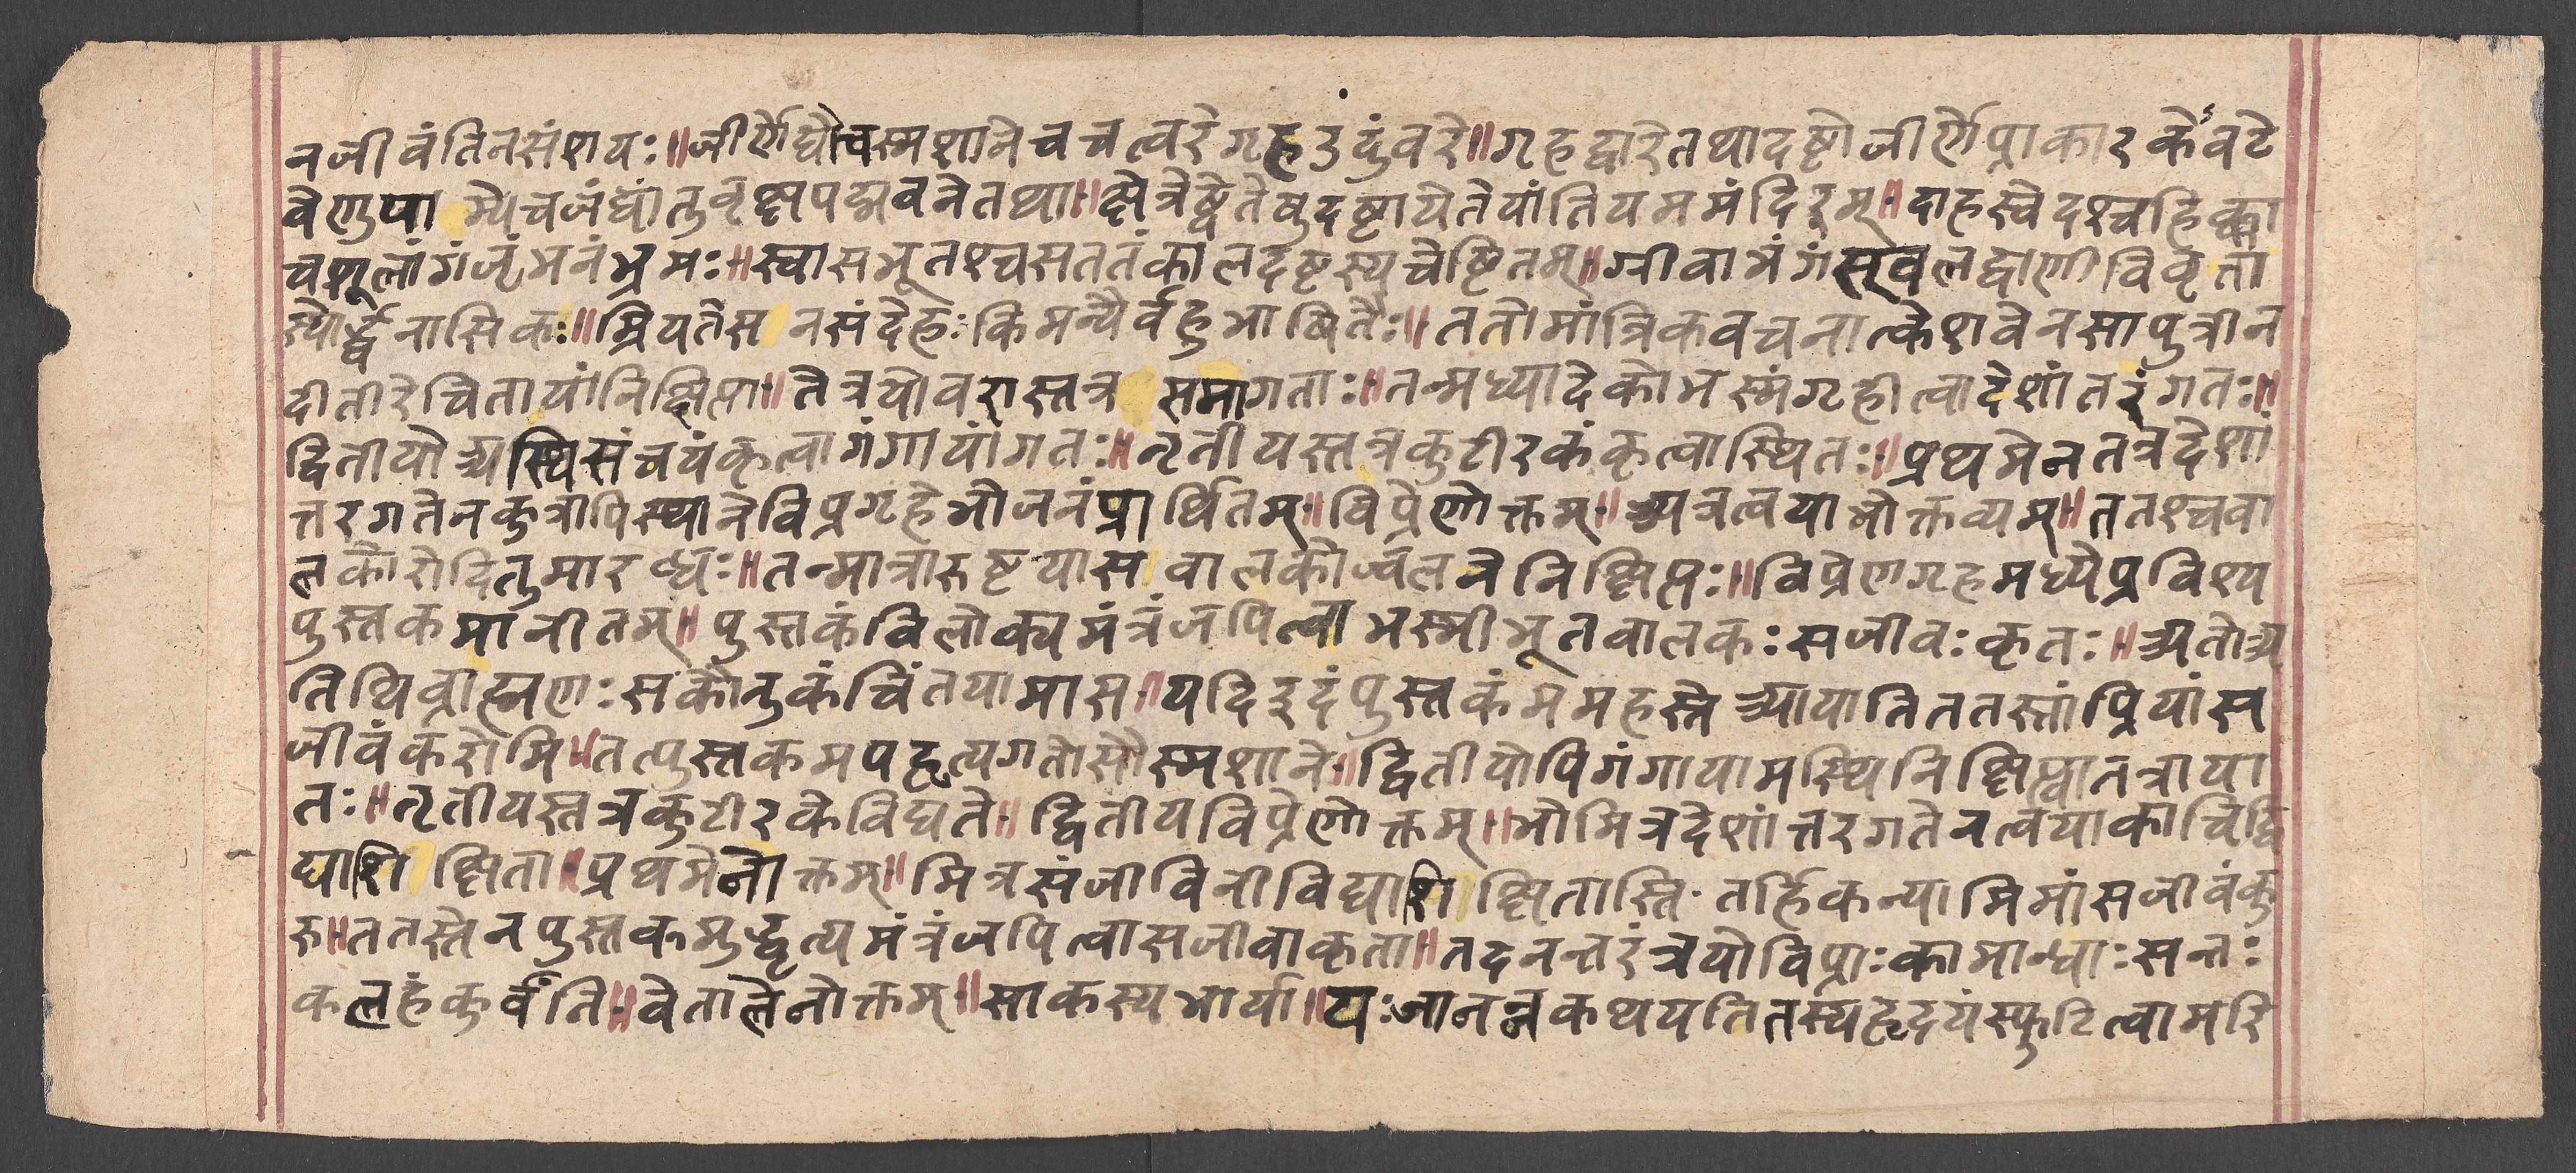 नजीवंतिनसंशयः॥जीर्णोद्यौचस्मशानेचचत्वरेगृहउदुंवरे॥गृहद्वारेतथादष्टोजीर्णेप्राकारकेवटे
वेणुपा म्येचजंघांतुवृक्षपद्मवनेतथा॥क्षेत्रेष्वेतेषुदष्टायेतेयांतियममंदिरम्॥दाहस्वेदश्चहिक्का
चशूलांगंजृंभनंभ्रमः॥स्वासभूतश्चसततंकालदष्टस्यचेष्टितम्॥ग्रीवाभंगंस्वलद्वाणीविकृता
स्योर्द्ध्वनासिकः॥म्रियतेस नसंदेहःकिमन्यैर्वहुभाषितैः॥ततोमांत्रिकवचनात्केशवेनसापुत्रीन
दीतीरेचितायांनिक्षिप्ता॥तेत्रयोवरास्तत्र समागताः॥तन्मध्यादेकोभस्मंगृहीत्वादेशांतरंगतः॥
द्वितीयोअस्थिसंचयंकृत्वागंगायांगतः॥तृतीयस्तत्रकुटीरकंकृत्वास्थितः॥प्रथमेनतत्रदेशां
त्तरगतेनकुत्रापिस्थानेविप्रगृहेभोजनंप्रार्थितम्॥विप्रेणोक्तम्॥अत्रत्वयाभोक्तव्यम्॥ततश्चवा
लकोरोदितुमारब्धः॥तन्मात्रारुष्टयास वालकोज्वलनेनिक्षिप्तः॥विप्रेणगृहमध्येप्रविश्य
पुस्तकमानीतम्॥पुस्तकंविलोक्यमंत्रंजपित्वाभस्मीभूतवालकःसजीवःकृतः॥अतोअ
तिथिव्राह्मणःसकौतुकंचिंतयामास॥यदिइदंपुस्तकंममहस्तेआयातिततस्तांप्रियांस
जीवंकरोमि॥तत्पुस्तकमपहृत्यगतोसौस्मशाने॥द्वितीयोपिगंगायामस्थिनिक्षिप्त्वातत्राया
तः॥तृतीयस्तत्रकुटीरकेविद्यते॥द्वितीयविप्रेणोक्तम्॥भोमित्रदेशांत्तरगतेनत्वयाकाचिद्वि
द्याशि क्षिता॥प्रथमेनोक्तम्॥मित्रसंजीविनीविद्याशि क्षितास्ति·तर्हिकन्यामिमांसजीवंकु
रु॥ततस्तेनपुस्तकमुद्धृत्यमंत्रंजपित्वासजीवाकृता॥तदनन्तरंत्रयोविप्राःकामान्धाःसन्तः
कलहंकुर्वंति॥वेतालेनोक्तम्॥साकस्यभार्या॥यःजानन्नकथयतितस्यहृदयंस्फुटित्वामरि